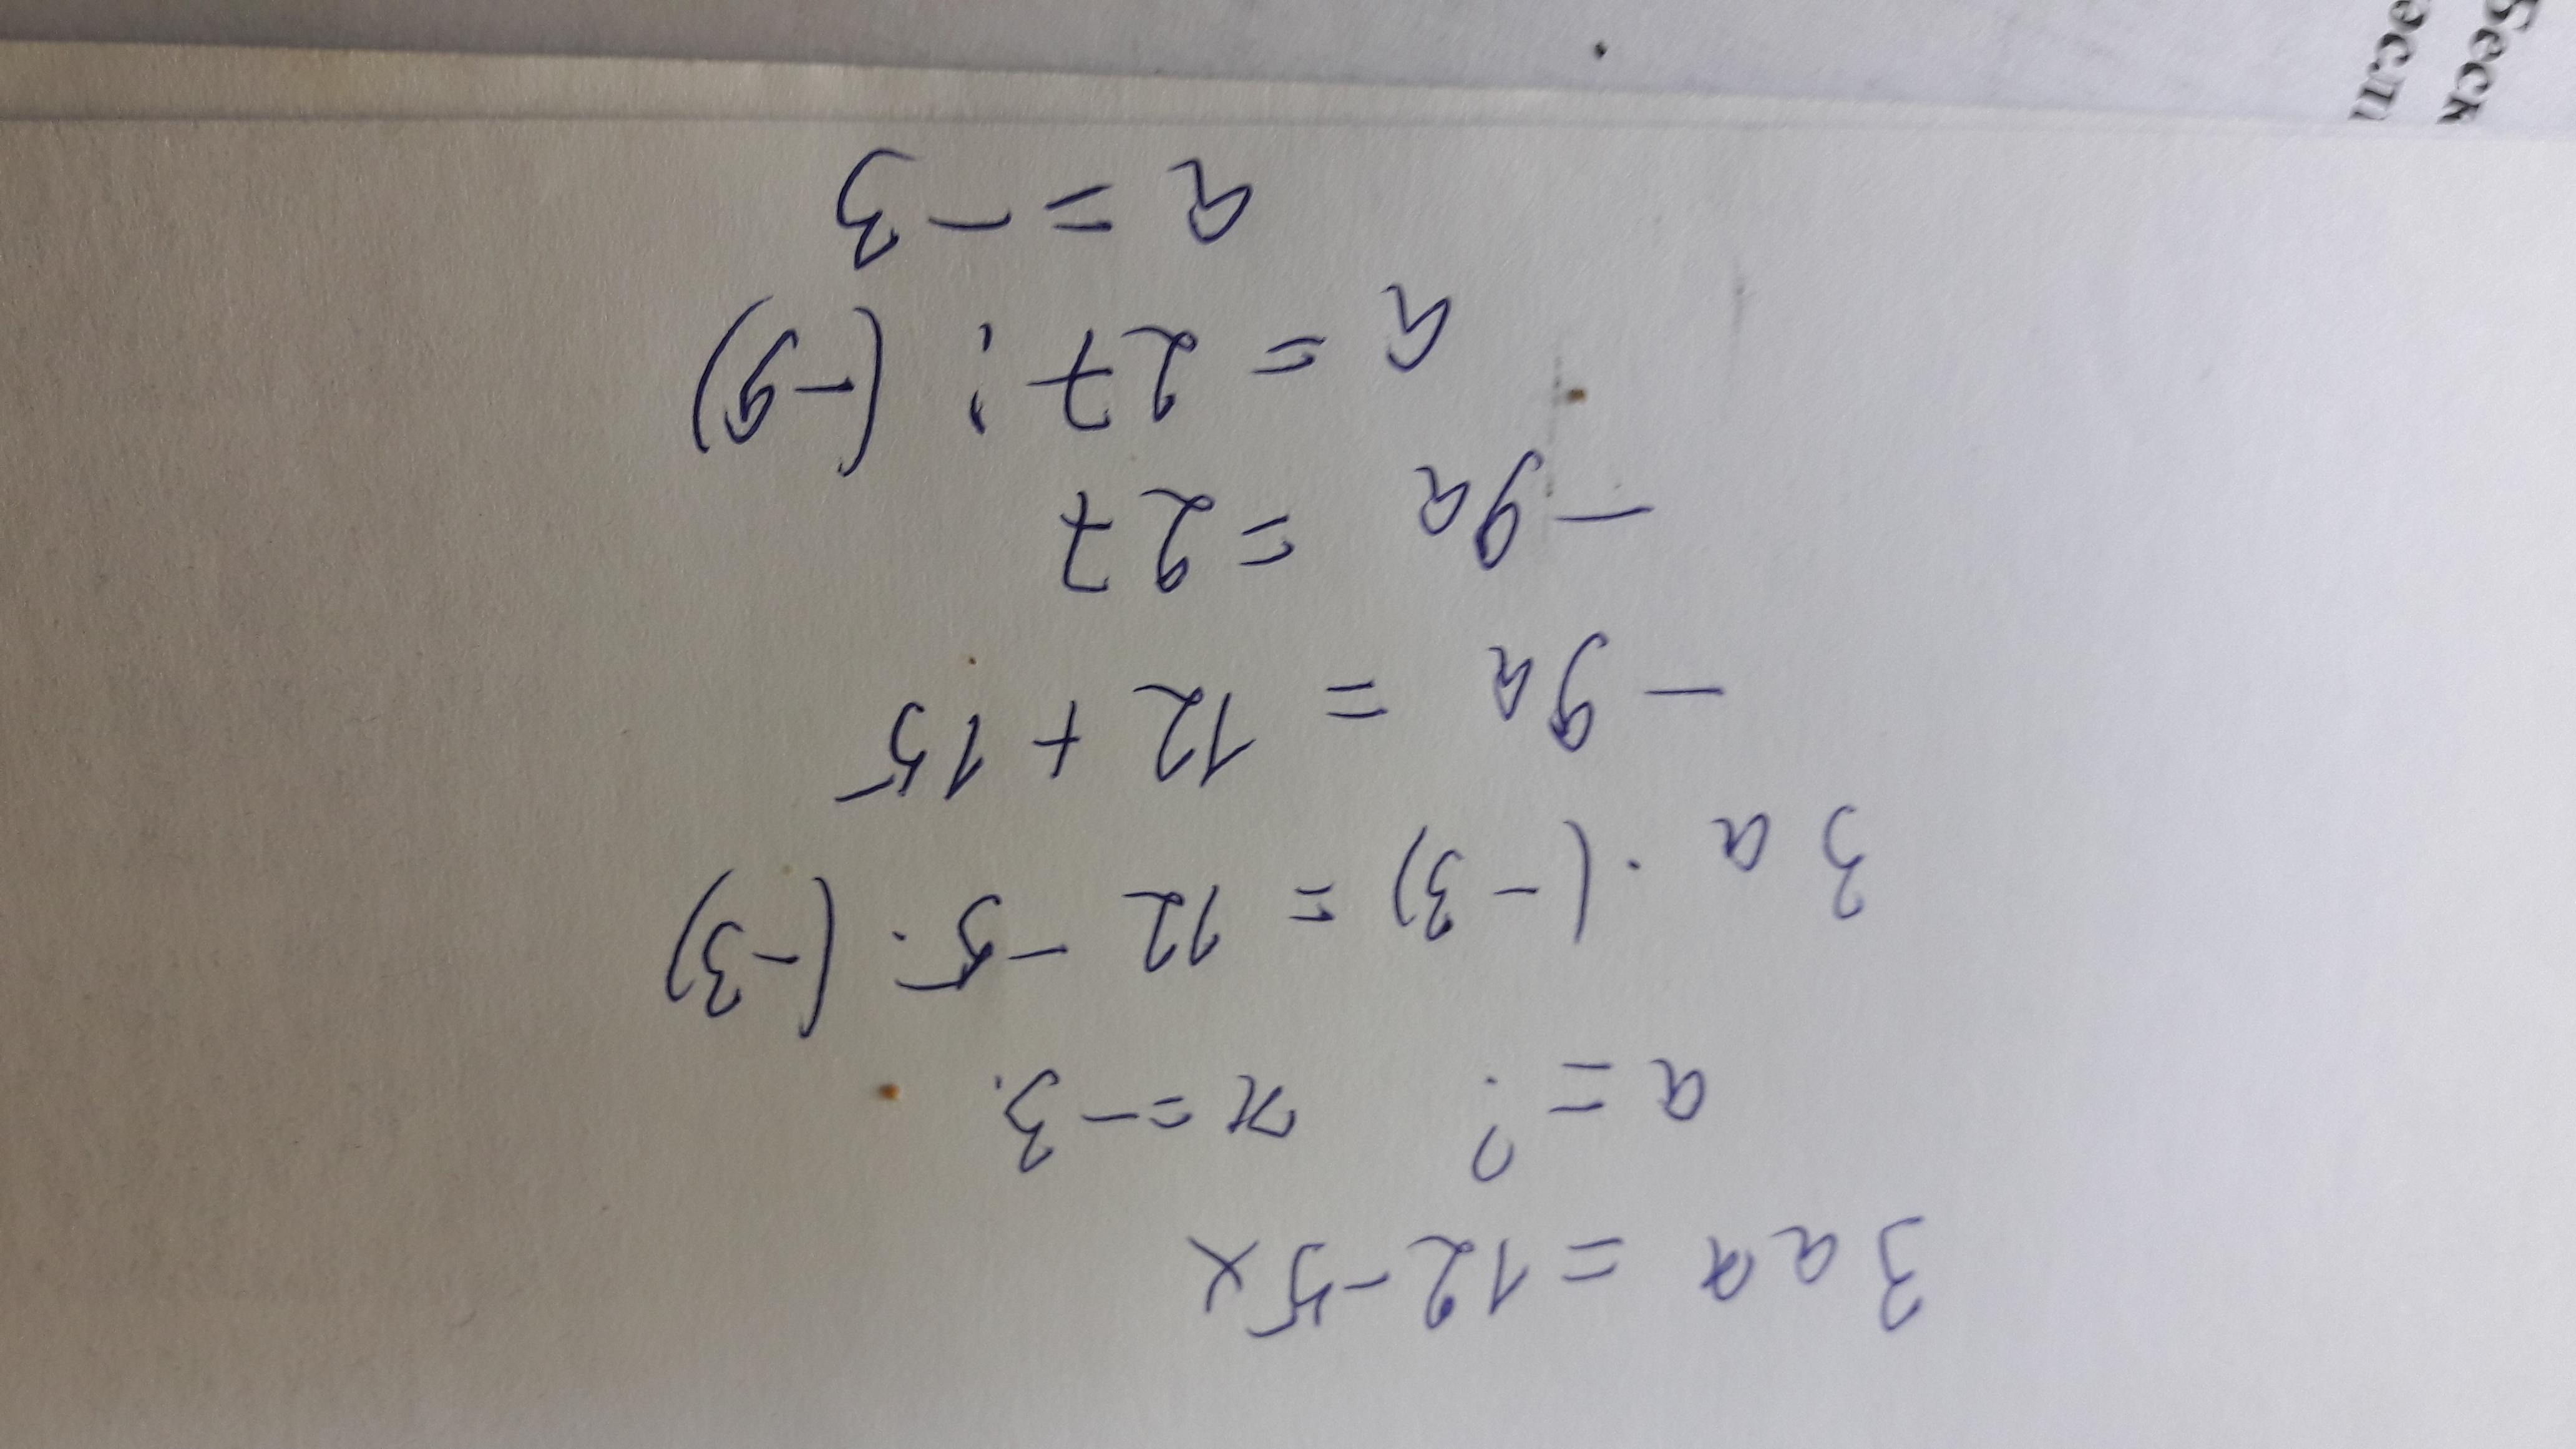 3aa = 12 - 5x
a = ? x = -3.
3a · (-3) = 12 - 5 · (-3)
- 9a = 12 + 15
- 9a = 27
a = 27 : (-9)
a = -3
Беск